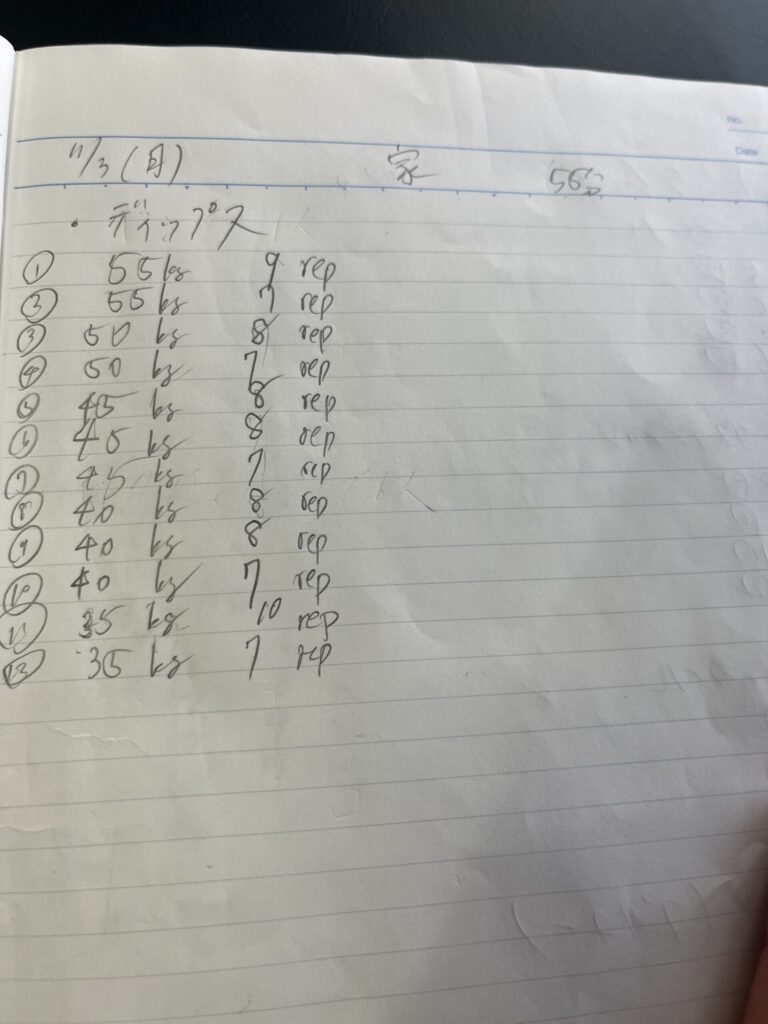 No.
Date
11/3 (月) 家 56分
・ディップス
① 55kg 9 rep
② 55kg 7 rep
③ 50 kg 8 rep
④ 50 kg 7 rep
⑤ 45 kg 8 rep
⑥ 45 kg 8 rep
⑦ 45 kg 7 rep
⑧ 40 kg 8 rep
⑨ 40 kg 8 rep
⑩ 40 kg 7 rep
⑪ 35 kg 10 rep
⑫ 35 kg 7 rep